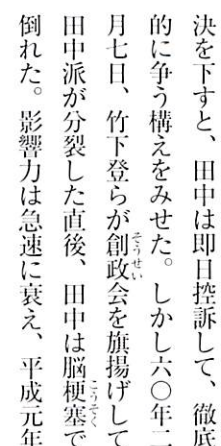 決を下すと、田中は即日控訴して、徹底
的に争う構えをみせた。しかし六〇年二
月七日、竹下登らが創政会を旗揚げして
田中派が分裂した直後、田中は脳梗塞で
倒れた。影響力は急速に衰え、平成元年